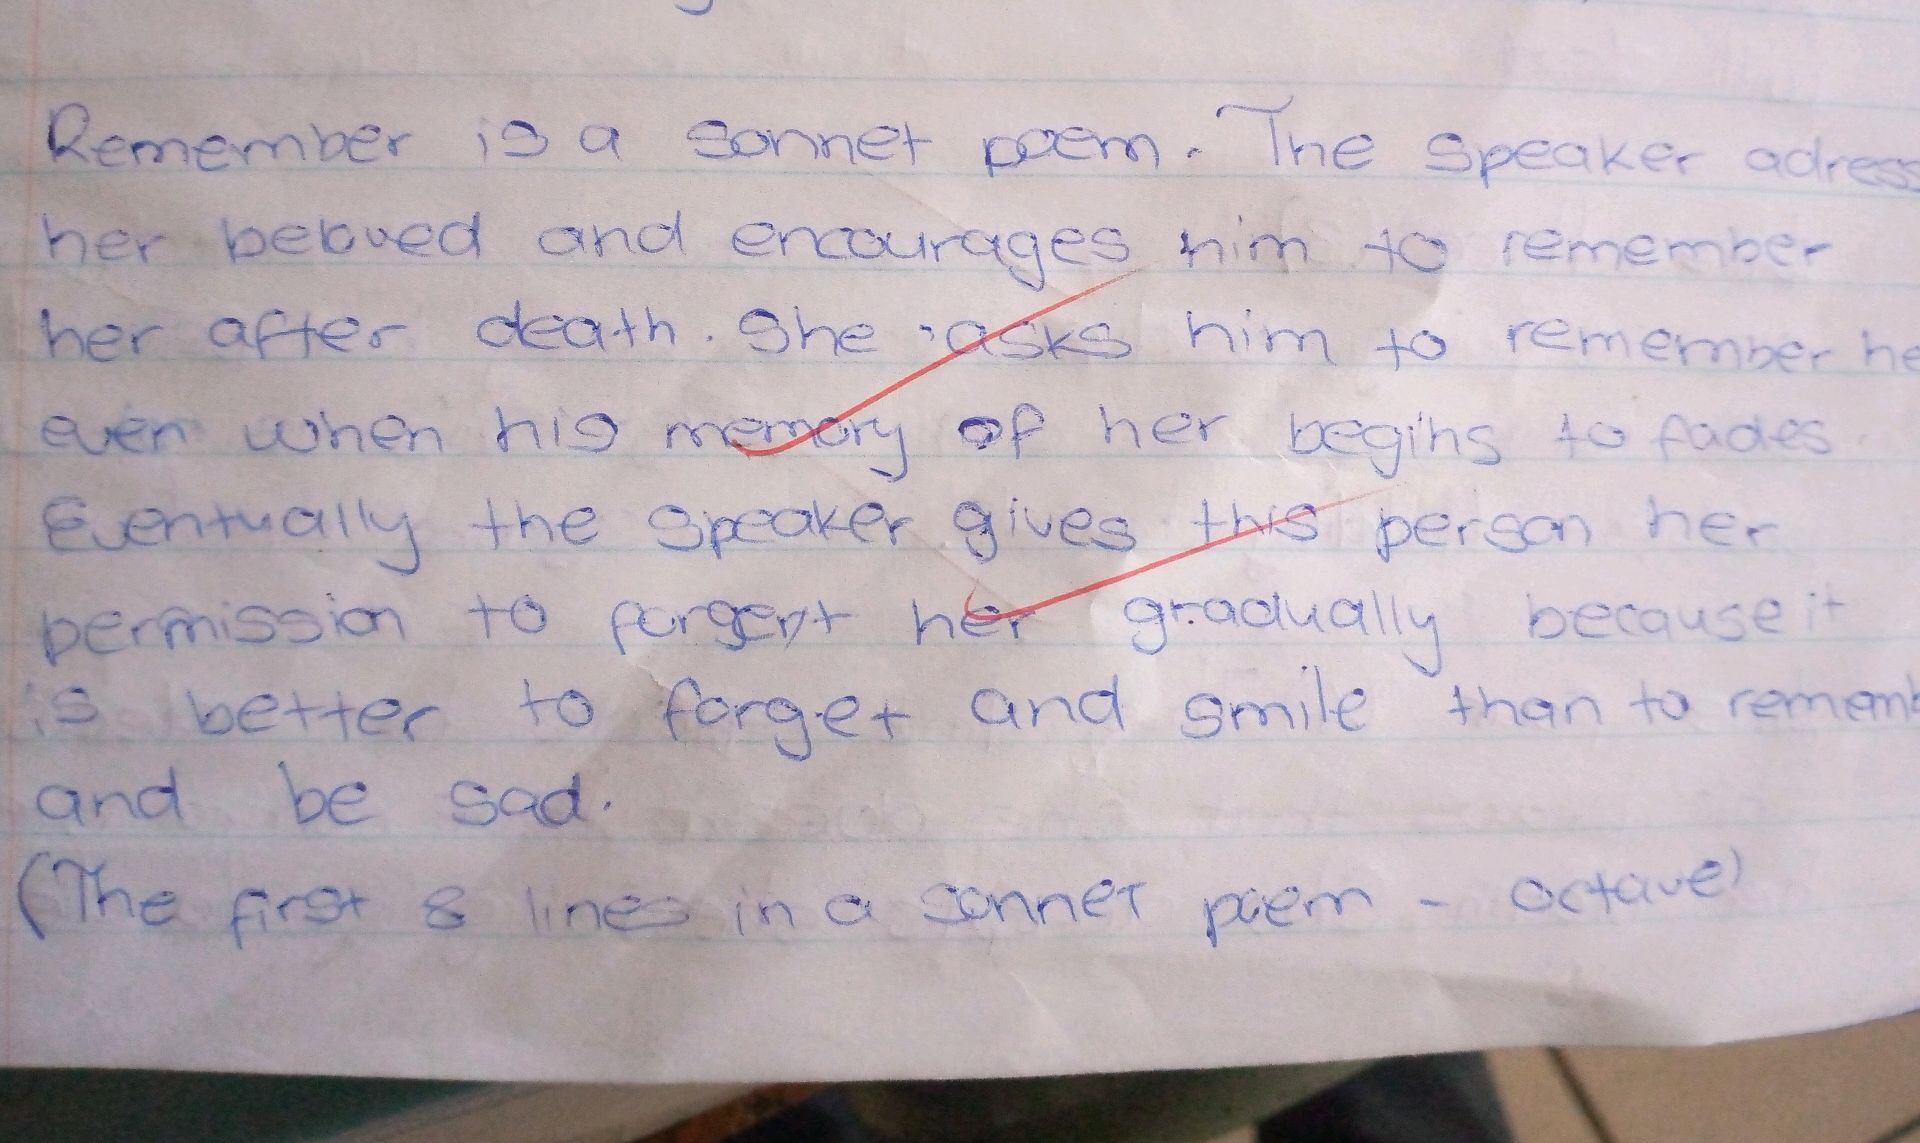 Remember is a sonnet poem. The speaker adress
her beloved and encourages him to remember
her after death. She asks him to remember he
even when his memory of her begins to fades.
Eventually the speaker gives this person her
permission to forgert her gradually because it
is better to forget and smile than to rememb
and be sad.
(The first 8 lines in a sonnet poem - octave)